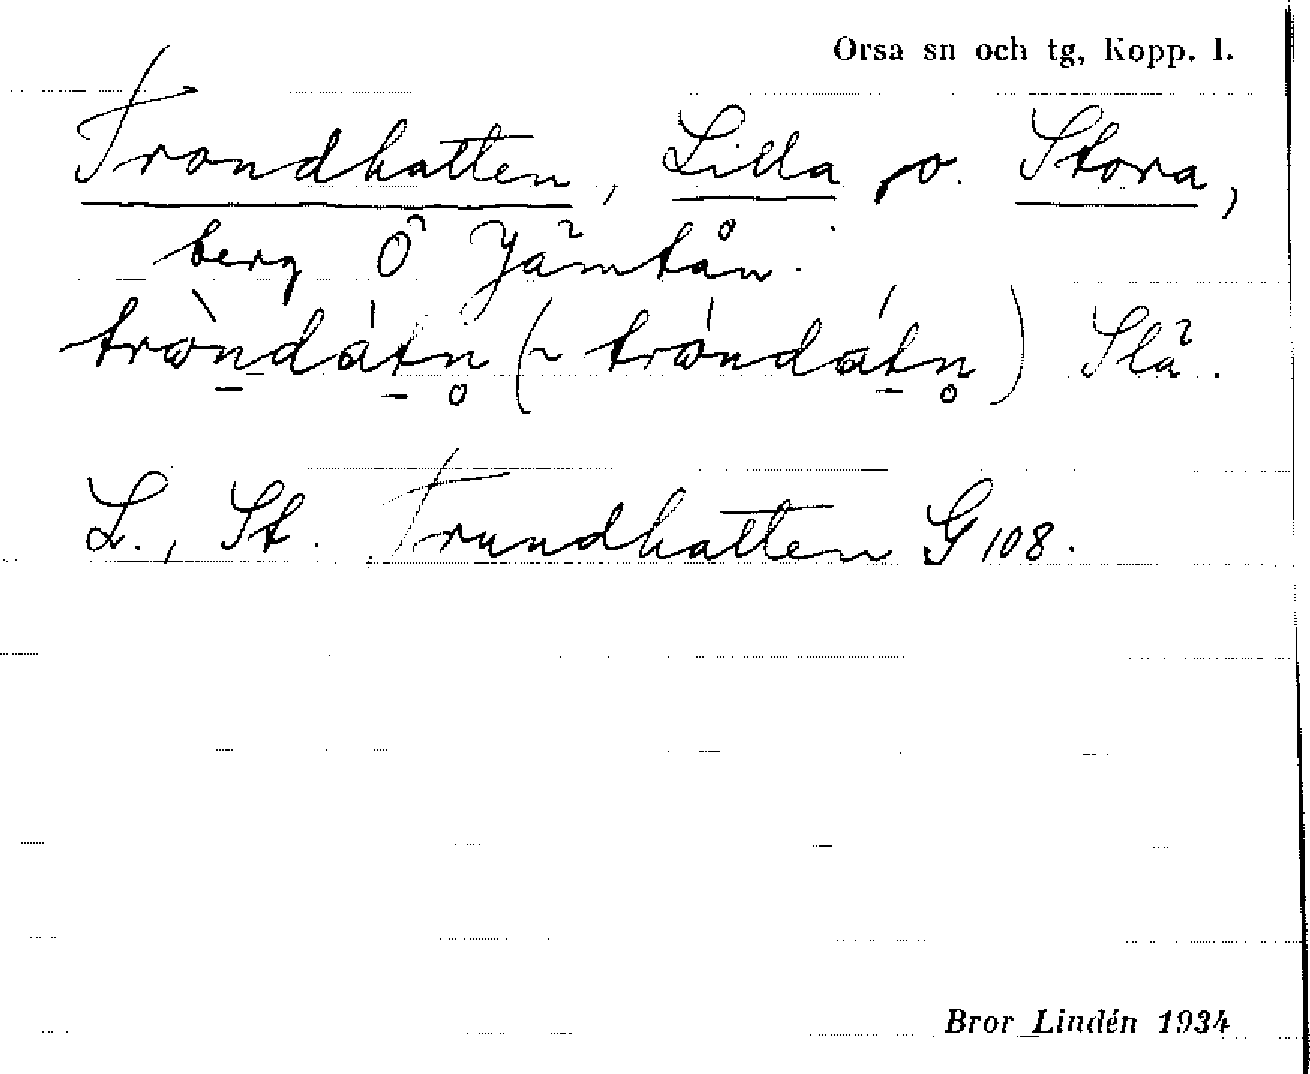 Orsa sn och tg, Kopp. l.
Trondhatten, Lilla o. Stora,
berg Ö Jämtån.
tròndátn (~ tróndátn) Slä.
L., St. Trundhatten G 108.
Bror Lindén 1934